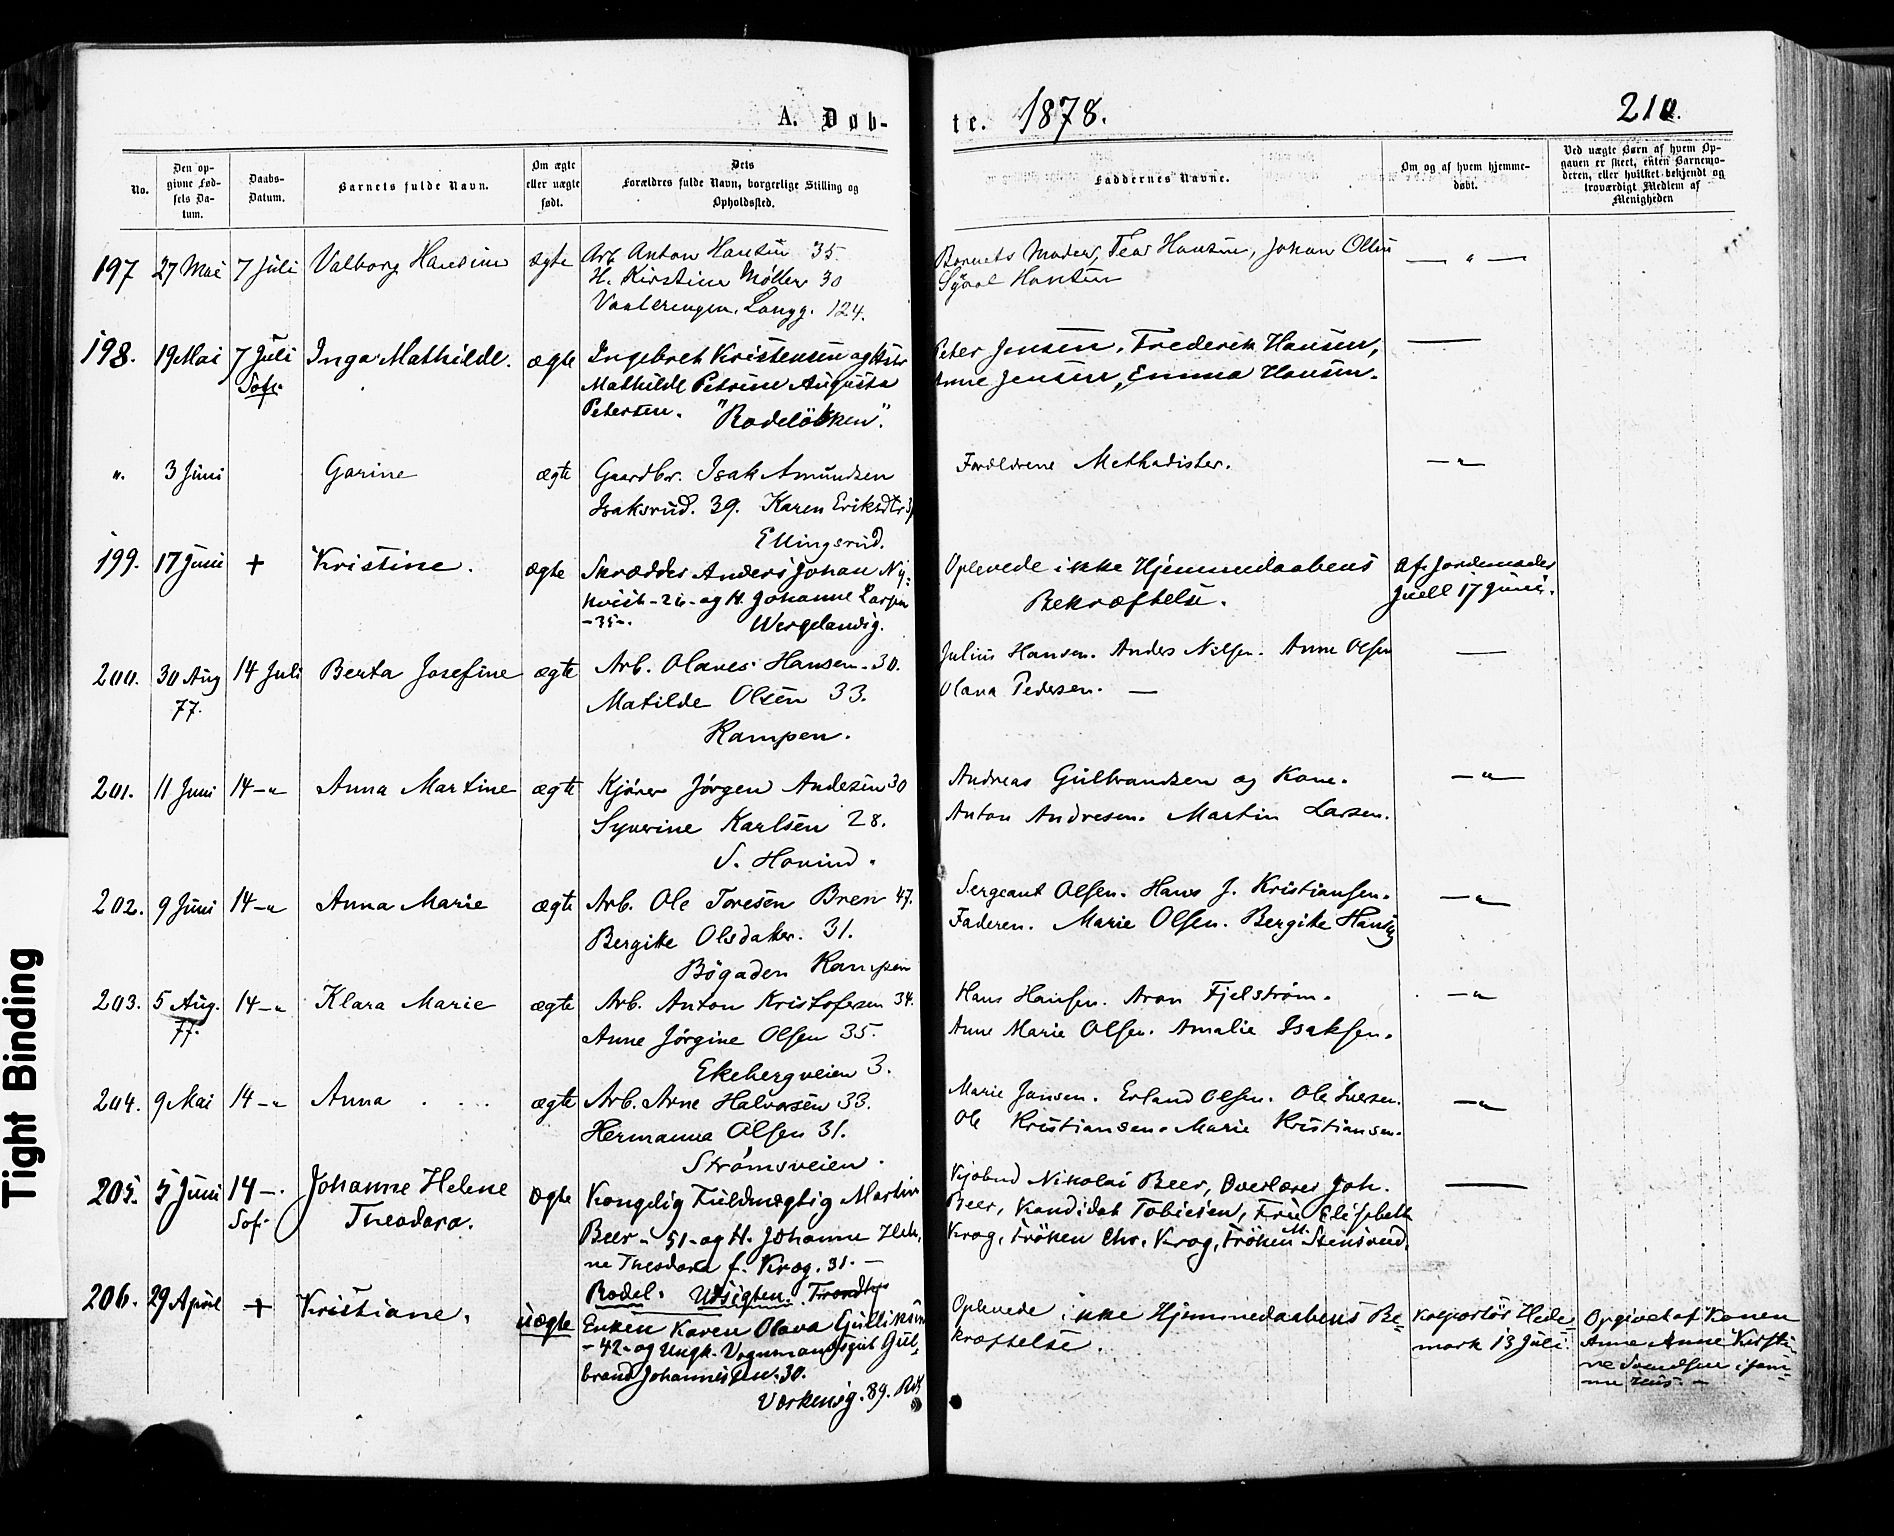 A. Døb-
te. 1878.
210.
No.
Den op-
givne Fød-
sels Da-
tum.
Daabs-
Datum.
Barnets fulde Navn.
Om ægte
eller uægte
født.
Dets
Forældres fulde Navn, borgerlige Stilling og
Opholdssted.
Faddernes Navne.
Om og af hvem hjemme-
døbt.
Ved uægte Børn af hvem Op-
gaven er skeet, enten Barnemo-
deren, eller hvilket bekjendt og
troværdigt Medlem af
Menigheden
197 27 Mai 7 Juli Valborg Hansine ægte Arb. Anton Hansen 35
H. Kirstine Møller 30
Vaalerengen, Langg. 124.
Barnets Moder, Hansen, Johan Olsen — " —
Hansen
198. 19 Mai 7 Juli Inga Mathilde. ægte Ingebret Kristensen og Hstr
Sof.
Mathilde Petrine Augusta
Petersen. "Rodeløkken".
Peter Jensen, Frederik Hansen, —
Anne Jensen, Emma Hansen.
". 3 Juni Garine ægte Gaardbr. Isak Amundsen
Isaksrud. 39. Karen Eriksdtr
Ellingsrud.
Forældrene Methodister. — " —
199. 17 Juni + Kristine. ægte Skrædder Anders Johan Ny-
kvist - 26 - og H. Johanne Larsen
- 35 -. Wergelandsg.
Oplevede ikke Hjemmedaabens
Bekræftelse.
Af Jordemoder
Juell 17 Juni.
200. 30 Aug 14 Juli Berta Josefine ægte Arb. Olaves Hansen. 30.
77.
Matilde Olsen 33.
Kampen.
Julius Hansen. Anders Nilsen. Anne Olsen —
Olana Pedersen. —
201. 11 Juni 14 — " Anna Martine ægte Kjører Jørgen Andesen 30
Syverine Karlsen 28.
S. Hovind.
Andreas Gulbrandsen og Kone. — " —
Anton Andresen. Martin Larsen.
202. 9 Juni 14 — " Anna Marie ægte Arb. Ole Toresen Bren 47.
Bergitte Olsdater. 31.
Bøgaden Kampen
Sergeant Olsen. Hans J. Kristiansen. — " —
Faderen. Marie Olsen. Bergitte Hansen
203. 5 Aug. 14 — " Klara Marie ægte Arb. Anton Kristofersen 34.
77.
Anne Jørgine Olsen 35.
Ekebergveien 3.
Hans Hansen. Aron Fjelstrøm. — " —
Anne Marie Olsen. Amalie Isaksen.
204. 9 Mai 14 — " Anna ægte Arb. Arne Halvorsen 33.
Hermanna Olsen 31.
Strømsveien.
Marie Jansen. Erland Olsen. Ole Iversen. — " —
Ole Kristiansen. Marie Kristiansen.
205. 5 Juni 14 —. Johanne Helene ægte Kongelig Fuldmægtig Martin
Sof.
Theodora.
Beer - 51 - og H. Johanne Hele-
ne Theodora f. Krog. 31. —
Rodel. Udsigten. Trondhj
Kjøbmd Nikolai Beer, Overlærer Joh. —
Beer, Kandidat Tobiesen, Frue Elisabeth
Krog, Frøken Chr. Krog, Frøken M. Stensrud.
206. 29 April + Kristiane. uægte Enken Karen Olava Gulliksen
- 42 - og Ungk. Vognmandsgut Gul-
brand Johannesen. 30.
Værkensg. 89.
Oplevede ikke Hjemmedaabens Be-
kræftelse.
Kolportør Hede-
mark 13 Juli.
Opgivet af Konen
Anne Anne Kirsti-
ne Svendsen i sam-
me Hus. —
Tight Binding